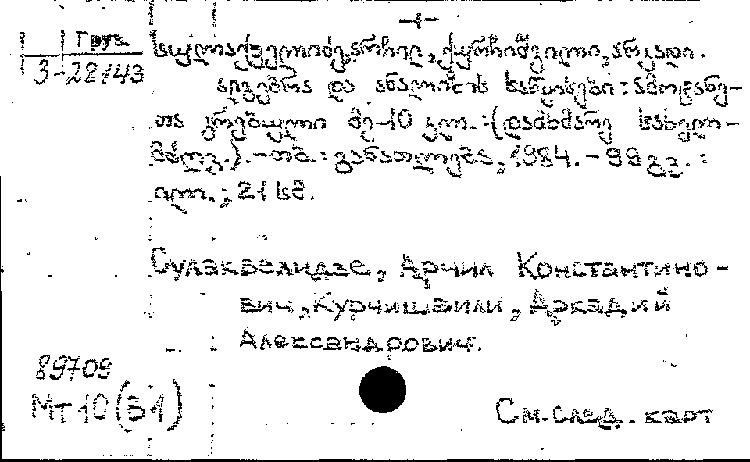 -1-
Груз
3-28143
სულაქველიძე, არჩილ, ქურჩიშვილი, არკადი.
ალგებრა და ანალიზის საწყისები : ამოცანე-
თა კრებული მე-10 კლ. : (დამხმარე სახელ-
მძღვ.). – თბ. : განათლება, 1984. – 99 გვ. :
ილ. ; 21 სმ.
Сулаквелидзе, Арчил Константино-
вич, Курчишвили, Аркадий
Александрович.
89709
Мт 10 (Б1)
См. след. карт